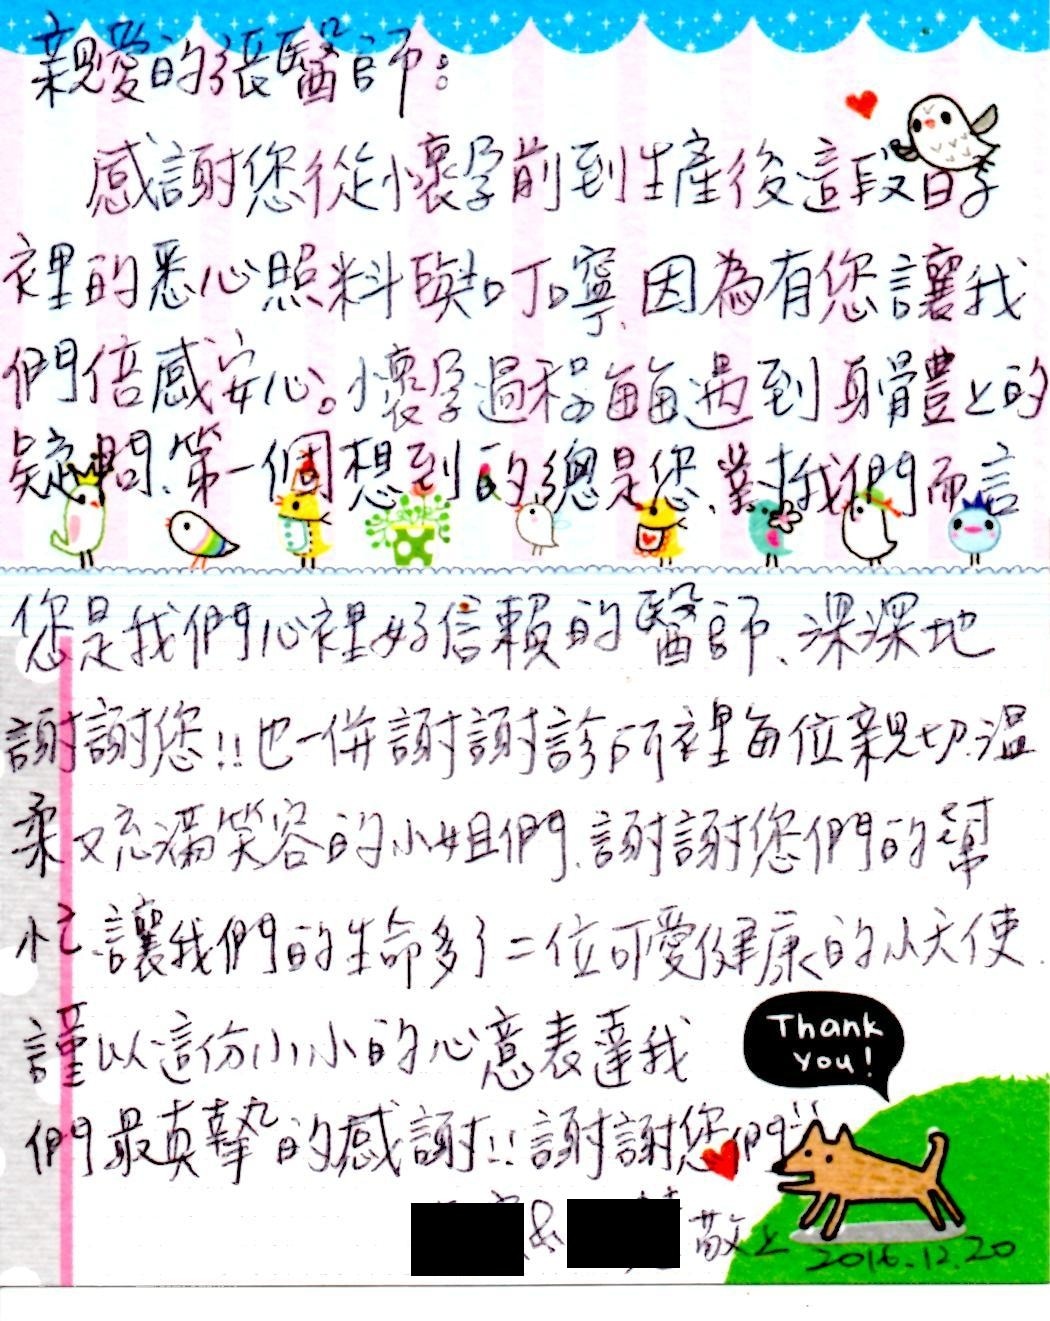 親愛的張醫師:
感謝您從懷孕前到生產後這段日子
裡的悉心照料與叮嚀、因為有您讓我
們倍感安心。懷孕過程每每遇到身體上的
疑問、第一個想到的總是您、對我們而言
您是我們心裡好信賴的醫師、深深地
謝謝您!!也一併謝謝診所裡每位親切、溫
柔又充滿笑容的小姐們、謝謝您們的幫
忙、讓我們的生命多了二位可愛健康的小天使、
謹以這份小小的心意表達我
們最真摯的感謝!!謝謝您們!!
Thank
You!
& 敬上
2016.12.20